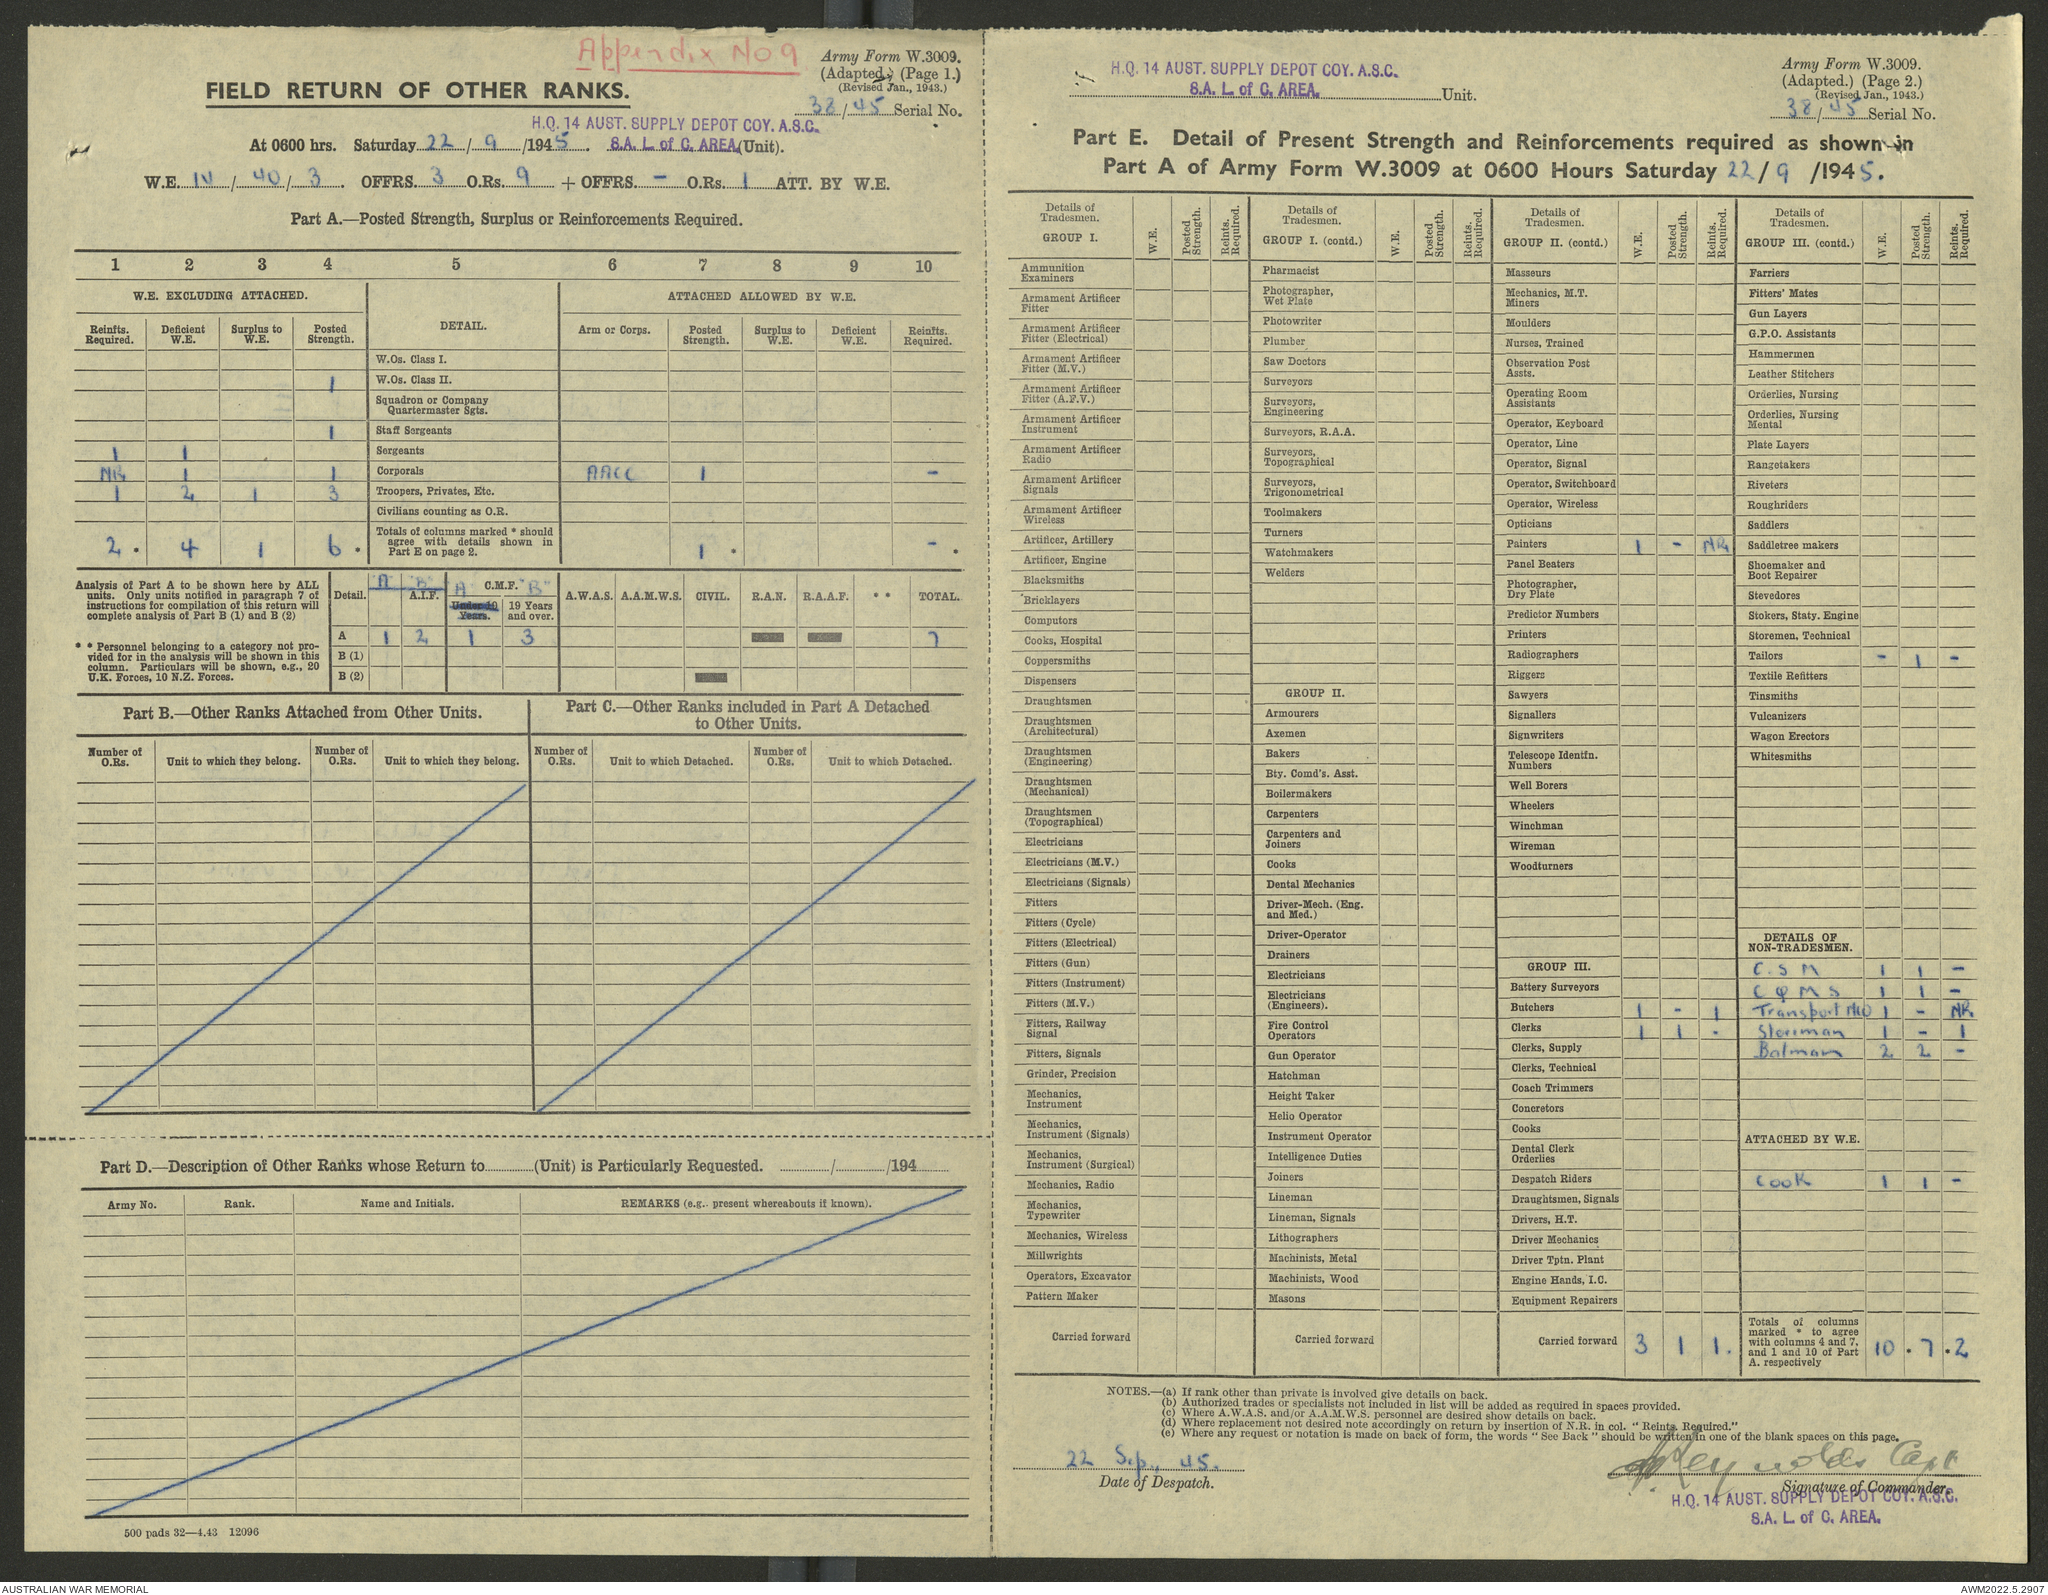 Appendix No 9
Army Form W.3009.
(Adapted.) (Page 1.)
(Revised Jan., 1943.)
38/45 Serial No.
FIELD RETURN OF OTHER RANKS.
H.Q. 14 AUST. SUPPLY DEPOT COY. A.S.C.
At 0600 hrs. Saturday 22/9/1945. S.A. L. of C. AREA (Unit).
W.E. 10/40/3. OFFRS. 3 O.Rs. 9 + OFFRS. - O.Rs. 1 ATT. BY W.E.
Part A.—Posted Strength, Surplus or Reinforcements Required.
1 2 3 4 5 6 7 8 9 10
W.E. EXCLUDING ATTACHED. DETAIL. ATTACHED ALLOWED BY W.E.
Reinfts. Required. Deficient W.E. Surplus to W.E. Posted Strength. Arm or Corps. Posted Strength. Surplus to W.E. Deficient W.E. Reinfts. Required.
W.Os. Class I.
1 W.Os. Class II.
Squadron or Company
Quartermaster Sgts.
1 Staff Sergeants
1 1 Sergeants
NR 1 1 Corporals AACC 1 -
1 2 1 3 Troopers, Privates, Etc.
Civilians counting as O.R.
Totals of columns marked * should
agree with details shown in
Part E on page 2.
2 * 4 1 6 * 1 * - *
Analysis of Part A to be shown here by ALL
units. Only units notified in paragraph 7 of
instructions for compilation of this return will
complete analysis of Part B (1) and B (2)
* * Personnel belonging to a category not pro-
vided for in the analysis will be shown in this
column. Particulars will be shown, e.g., 20
U.K. Forces, 10 N.Z. Forces.
Detail. "A" "B" A.I.F. C.M.F. "A" "B" Under 19 Years. 19 Years and over. A.W.A.S. A.A.M.W.S. CIVIL. R.A.N. R.A.A.F. * * TOTAL.
A 1 2 1 3 7
B (1)
B (2)
Part B.—Other Ranks Attached from Other Units.
Number of O.Rs. Unit to which they belong. Number of O.Rs. Unit to which they belong.
Part C.—Other Ranks included in Part A Detached
to Other Units.
Number of O.Rs. Unit to which Detached. Number of O.Rs. Unit to which Detached.
Part D.—Description of Other Ranks whose Return to (Unit) is Particularly Requested. / /194
Army No. Rank. Name and Initials. REMARKS (e.g., present whereabouts if known).
500 pads 32—4.43 12096
H.Q. 14 AUST. SUPPLY DEPOT COY. A.S.C.
S.A. L. of C. AREA. Unit.
Army Form W.3009.
(Adapted.) (Page 2.)
(Revised Jan., 1943.)
38/45 Serial No.
Part E. Detail of Present Strength and Reinforcements required as shown in
Part A of Army Form W.3009 at 0600 Hours Saturday 22/9/1945.
Details of Tradesmen. W.E. Posted Strength. Reints. Required.
GROUP I.
Ammunition
Examiners
Armament Artificer
Fitter
Armament Artificer
Fitter (Electrical)
Armament Artificer
Fitter (M.V.)
Armament Artificer
Fitter (A.F.V.)
Armament Artificer
Instrument
Armament Artificer
Radio
Armament Artificer
Signals
Armament Artificer
Wireless
Artificer, Artillery
Artificer, Engine
Blacksmiths
Bricklayers
Computors
Cooks, Hospital
Coppersmiths
Dispensers
Draughtsmen
Draughtsmen
(Architectural)
Draughtsmen
(Engineering)
Draughtsmen
(Mechanical)
Draughtsmen
(Topographical)
Electricians
Electricians (M.V.)
Electricians (Signals)
Fitters
Fitters (Cycle)
Fitters (Electrical)
Fitters (Gun)
Fitters (Instrument)
Fitters (M.V.)
Fitters, Railway
Signal
Fitters, Signals
Grinder, Precision
Mechanics,
Instrument
Mechanics,
Instrument (Signals)
Mechanics,
Instrument (Surgical)
Mechanics, Radio
Mechanics,
Typewriter
Mechanics, Wireless
Millwrights
Operators, Excavator
Pattern Maker
Carried forward
Details of Tradesmen. W.E. Posted Strength. Reints. Required.
GROUP I. (contd.)
Pharmacist
Photographer,
Wet Plate
Photowriter
Plumber
Saw Doctors
Surveyors
Surveyors,
Engineering
Surveyors, R.A.A.
Surveyors,
Topographical
Surveyors,
Trigonometrical
Toolmakers
Turners
Watchmakers
Welders
GROUP II.
Armourers
Axemen
Bakers
Bty. Comd's. Asst.
Boilermakers
Carpenters
Carpenters and
Joiners
Cooks
Dental Mechanics
Driver-Mech. (Eng.
and Med.)
Driver-Operator
Drainers
Electricians
Electricians
(Engineers).
Fire Control
Operators
Gun Operator
Hatchman
Height Taker
Helio Operator
Instrument Operator
Intelligence Duties
Joiners
Lineman
Lineman, Signals
Lithographers
Machinists, Metal
Machinists, Wood
Masons
Carried forward
Details of Tradesmen. W.E. Posted Strength. Reints. Required.
GROUP II. (contd.)
Masseurs
Mechanics, M.T.
Miners
Moulders
Nurses, Trained
Observation Post
Assts.
Operating Room
Assistants
Operator, Keyboard
Operator, Line
Operator, Signal
Operator, Switchboard
Operator, Wireless
Opticians
Painters 1 - NR
Panel Beaters
Photographer,
Dry Plate
Predictor Numbers
Printers
Radiographers
Riggers
Sawyers
Signallers
Signwriters
Telescope Identfn.
Numbers
Well Borers
Wheelers
Winchman
Wireman
Woodturners
GROUP III.
Battery Surveyors
Butchers 1 - 1
Clerks 1 1 -
Clerks, Supply
Clerks, Technical
Coach Trimmers
Concretors
Cooks
Dental Clerk
Orderlies
Despatch Riders
Draughtsmen, Signals
Drivers, H.T.
Driver Mechanics
Driver Tptn. Plant
Engine Hands, I.C.
Equipment Repairers
Carried forward 3 1 1.
Details of Tradesmen. W.E. Posted Strength. Reints Required.
GROUP III. (contd.)
Farriers
Fitters' Mates
Gun Layers
G.P.O. Assistants
Hammermen
Leather Stitchers
Orderlies, Nursing
Orderlies, Nursing
Mental
Plate Layers
Rangetakers
Riveters
Roughriders
Saddlers
Saddletree makers
Shoemaker and
Boot Repairer
Stevedores
Stokers, Staty. Engine
Storemen, Technical
Tailors - 1 -
Textile Refitters
Tinsmiths
Vulcanizers
Wagon Erectors
Whitesmiths
DETAILS OF
NON-TRADESMEN.
C.S M 1 1 -
C Q M S 1 1 -
Transport NCO 1 - NR
Storeman 1 - 1
Batman 2 2 -
ATTACHED BY W.E.
Cook 1 1 -
Totals of columns
marked * to agree
with columns 4 and 7,
and 1 and 10 of Part
A. respectively
10 * 7 * 2
NOTES.—(a) If rank other than private is involved give details on back.
(b) Authorized trades or specialists not included in list will be added as required in spaces provided.
(c) Where A.W.A.S. and/or A.A.M.W.S. personnel are desired show details on back.
(d) Where replacement not desired note accordingly on return by insertion of N.R. in col. "Reints. Required."
(e) Where any request or notation is made on back of form, the words "See Back" should be written in one of the blank spaces on this page.
22 Sep., 45.
Date of Despatch.
Reynolds Capt
Signature of Commander.
H.Q. 14 AUST. SUPPLY DEPOT COY. A.S.C.
S.A. L. of C. AREA.
AUSTRALIAN WAR MEMORIAL
AWM2022.5.2907